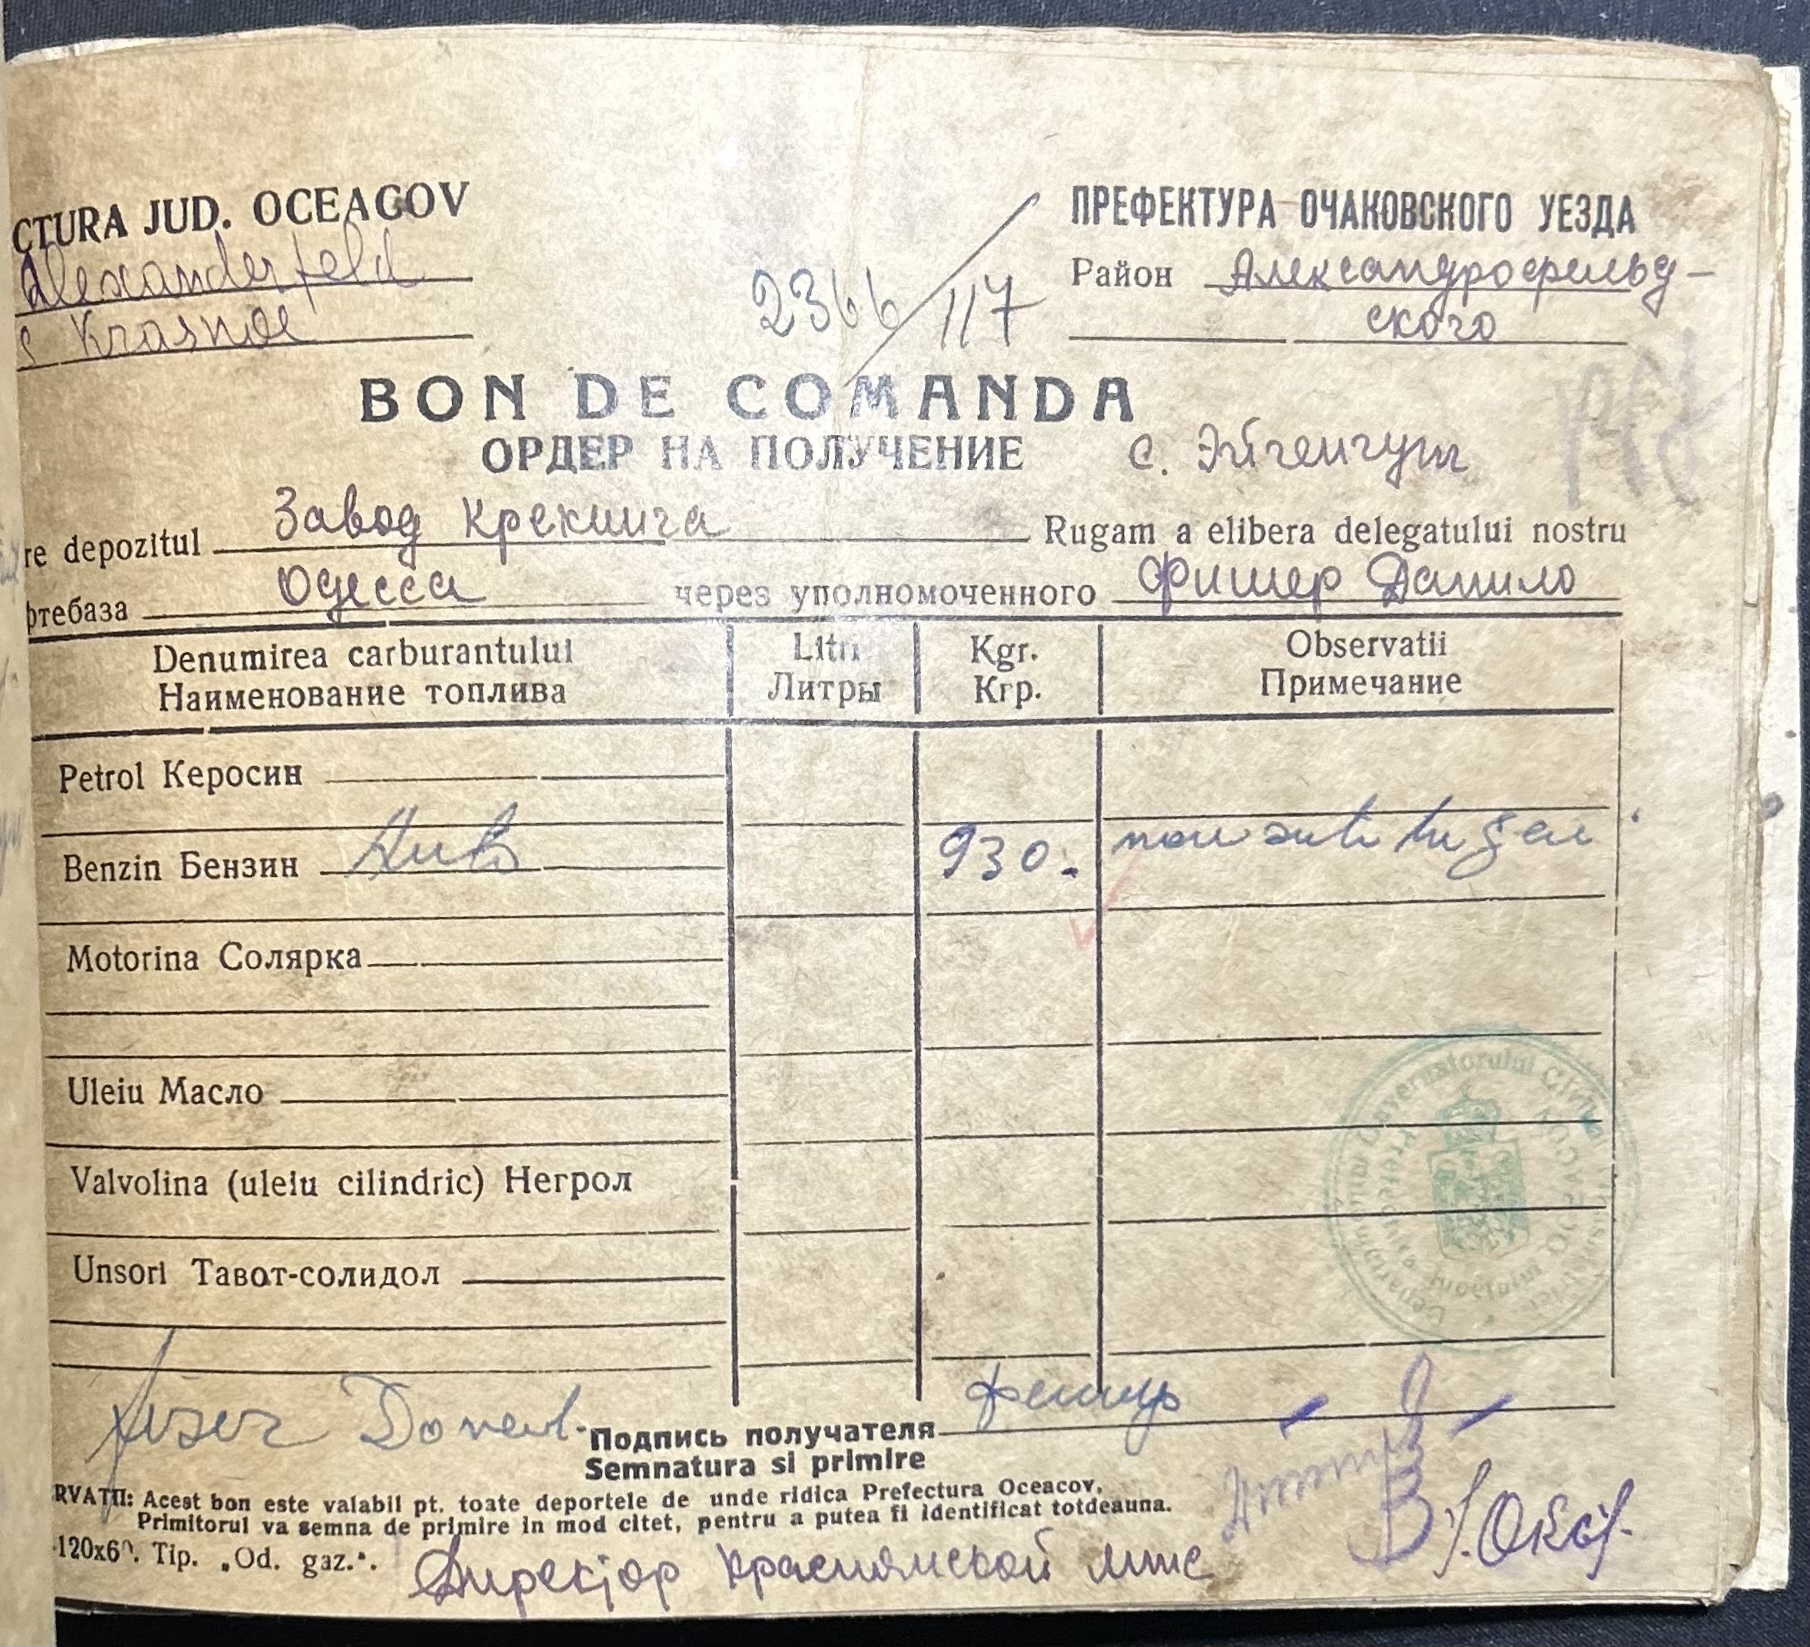 CTURA JUD. OCEACOV
ПРЕФЕКТУРА ОЧАКОВСКОГО УЕЗДА
Alexanderfeld
Район Александрофельд-
ского
Krasnoe
2366/117
BON DE COMANDA
ОРДЕР НА ПОЛУЧЕНИЕ с. Эйгенгут
re depozitul Завод Крекинга Rugam a elibera delegatului nostru
фтебаза Одесса через уполномоченного Фишер Данило
Denumirea carburantului Litri Kgr. Observatii
Наименование топлива Литры Кгр. Примечание
Petrol Керосин
Benzin Бензин Auto 930.-
Motorina Солярка
Uleiu Масло
Valvolina (uleiu cilindric) Негрол
Unsori Тавот-солидол
Guvernatorului Civil
Prefectura Judetului
Подпись получателя Фишер
Semnatura si primire
RVATII: Acest bon este valabil pt. toate deportele de unde ridica Prefectura Oceacov,
Primitorul va semna de primire in mod citet, pentru a putea fi identificat totdeauna.
120x60. Tip. „Od. gaz.“.
Директор Краснянской мтс